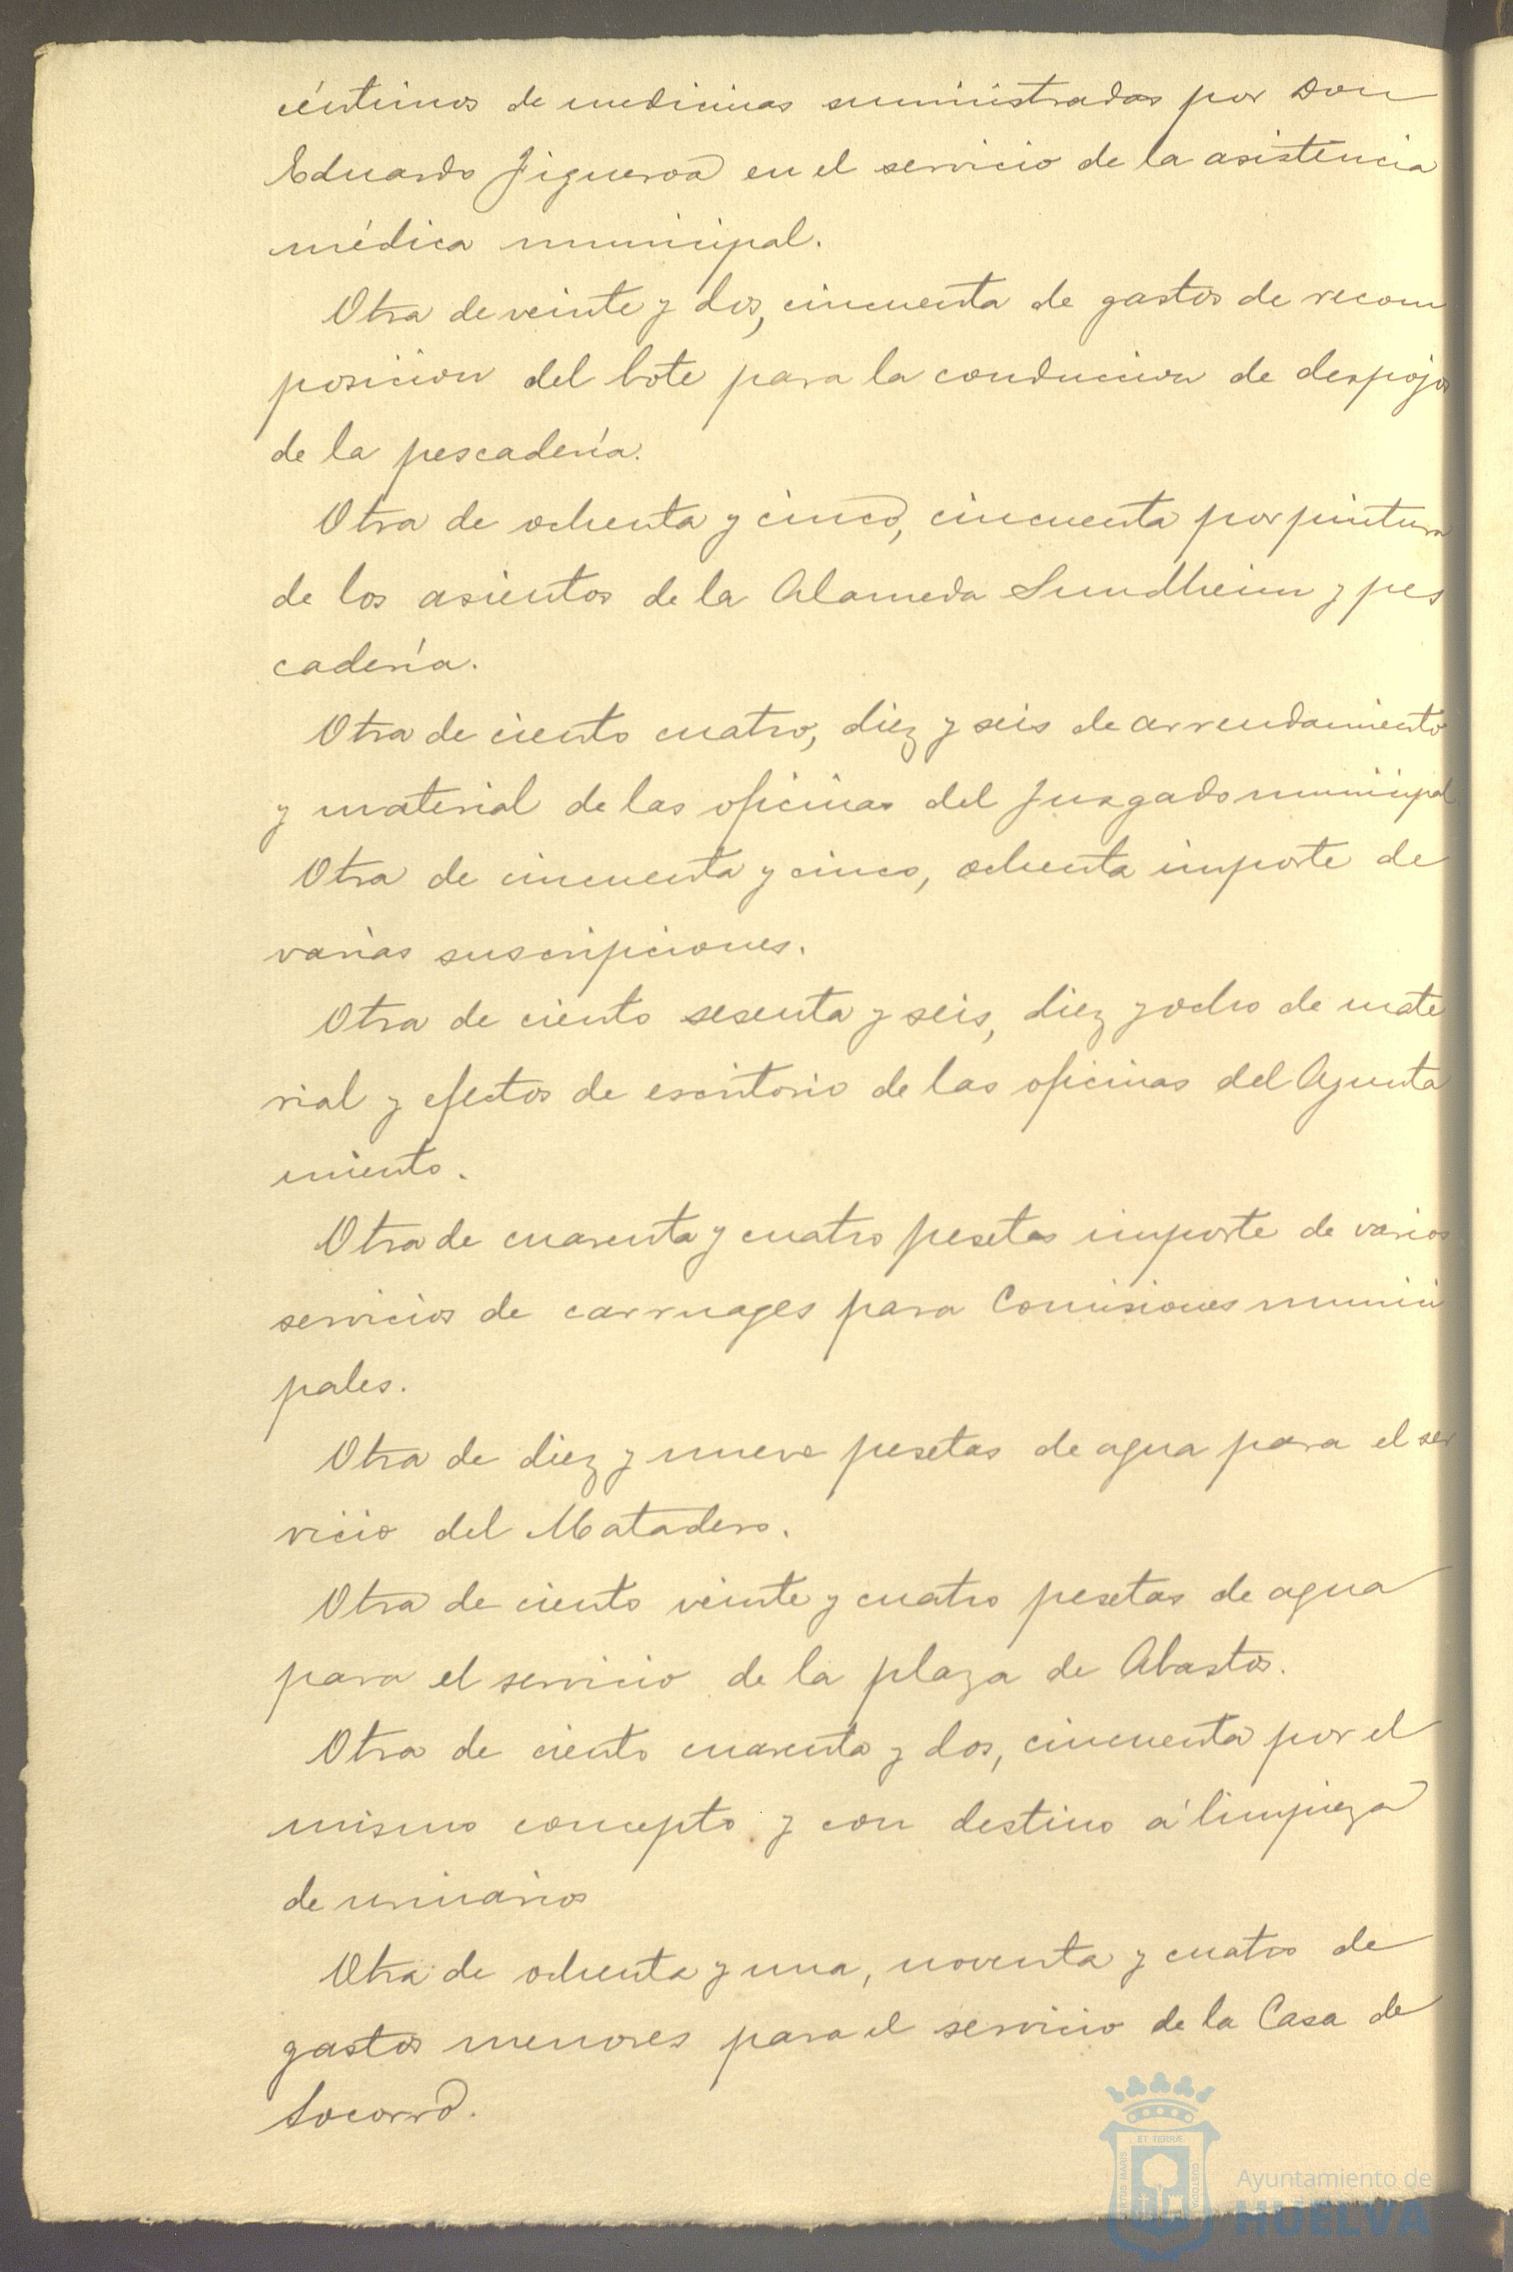 céntimos de medicinas suministradas por Don
Eduardo Figueroa en el servicio de la asistencia
médica municipal.
Otra de veinte y dos, cincuenta de gastos de recom
posicion del bote para la conduccion de despojos
de la pescadería.
Otra de ochenta y cinco, cincuenta por pintura
de los asientos de la Alameda Sundheim y pes
cadería.
Otra de ciento cuatro, diez y seis de arrendamiento
y material de las oficinas del Juzgado municipal
Otra de cincuenta y cinco, ochenta importe de
varias suscripciones.
Otra de ciento sesenta y seis, diez y ocho de mate
rial y efectos de escritorio de las oficinas del Ayunta
miento.
Otra de cuarenta y cuatro pesetas importe de varios
servicios de carruages para Comisiones munici
pales.
Otra de diez y nueve pesetas de agua para el ser
vicio del Matadero.
Otra de ciento veinte y cuatro pesetas de agua
para el servicio de la plaza de Abastos.
Otra de ciento cuarenta y dos, cincuenta por el
mismo concepto y con destino á limpieza
de urinarios
Otra de ochenta y una, noventa y cuatro de
gastos menores para el servicio de la Casa de
Socorro.
ET TERRÆ
PORTUS MARIS
CUSTODIA
Ayuntamiento de
HUELVA